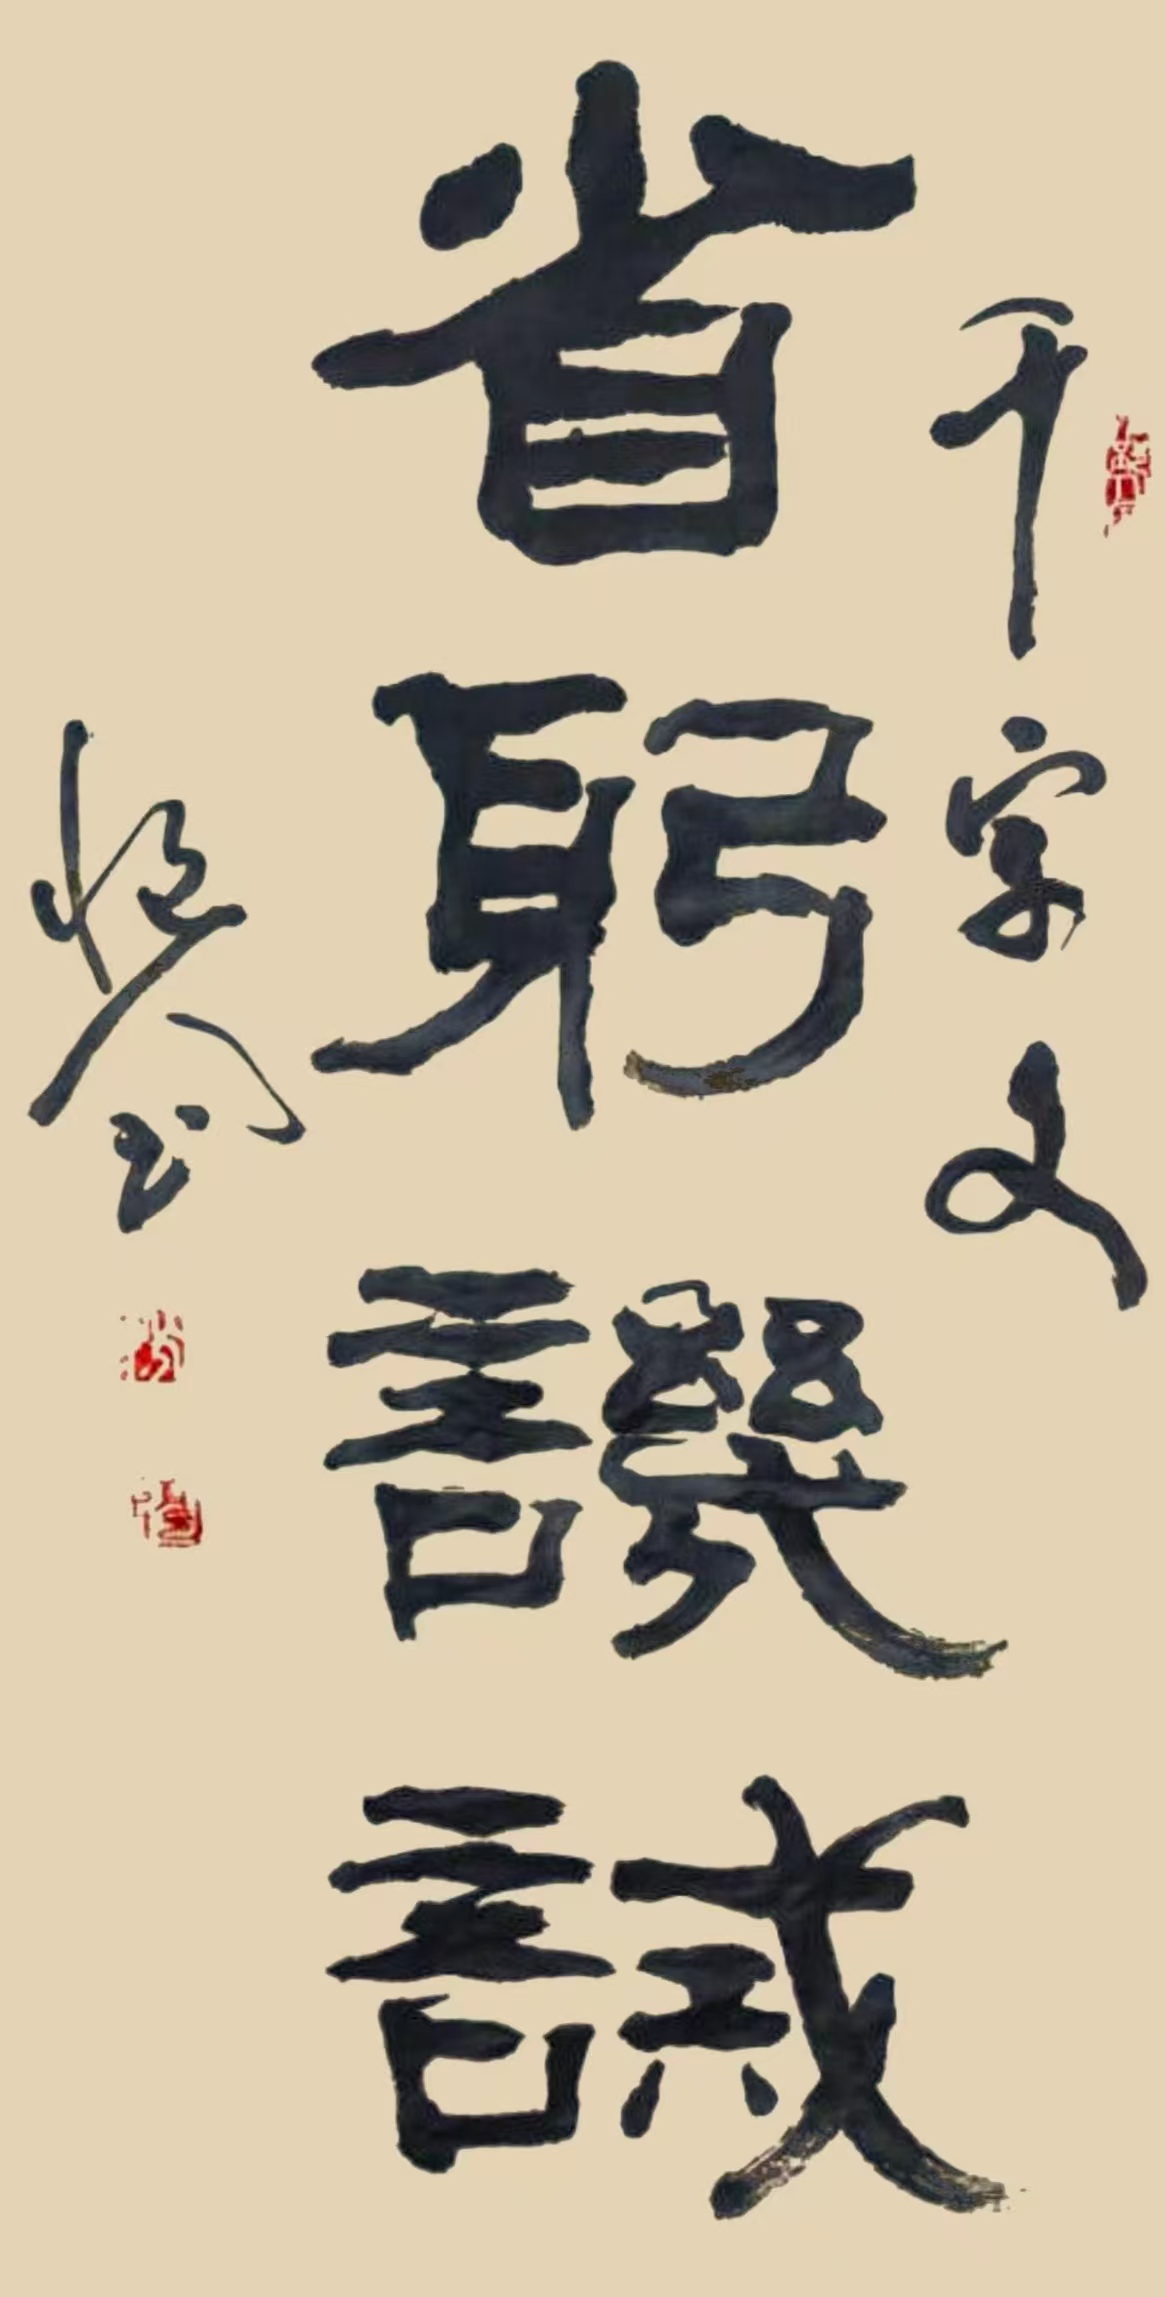 千字文
省躬譏誡